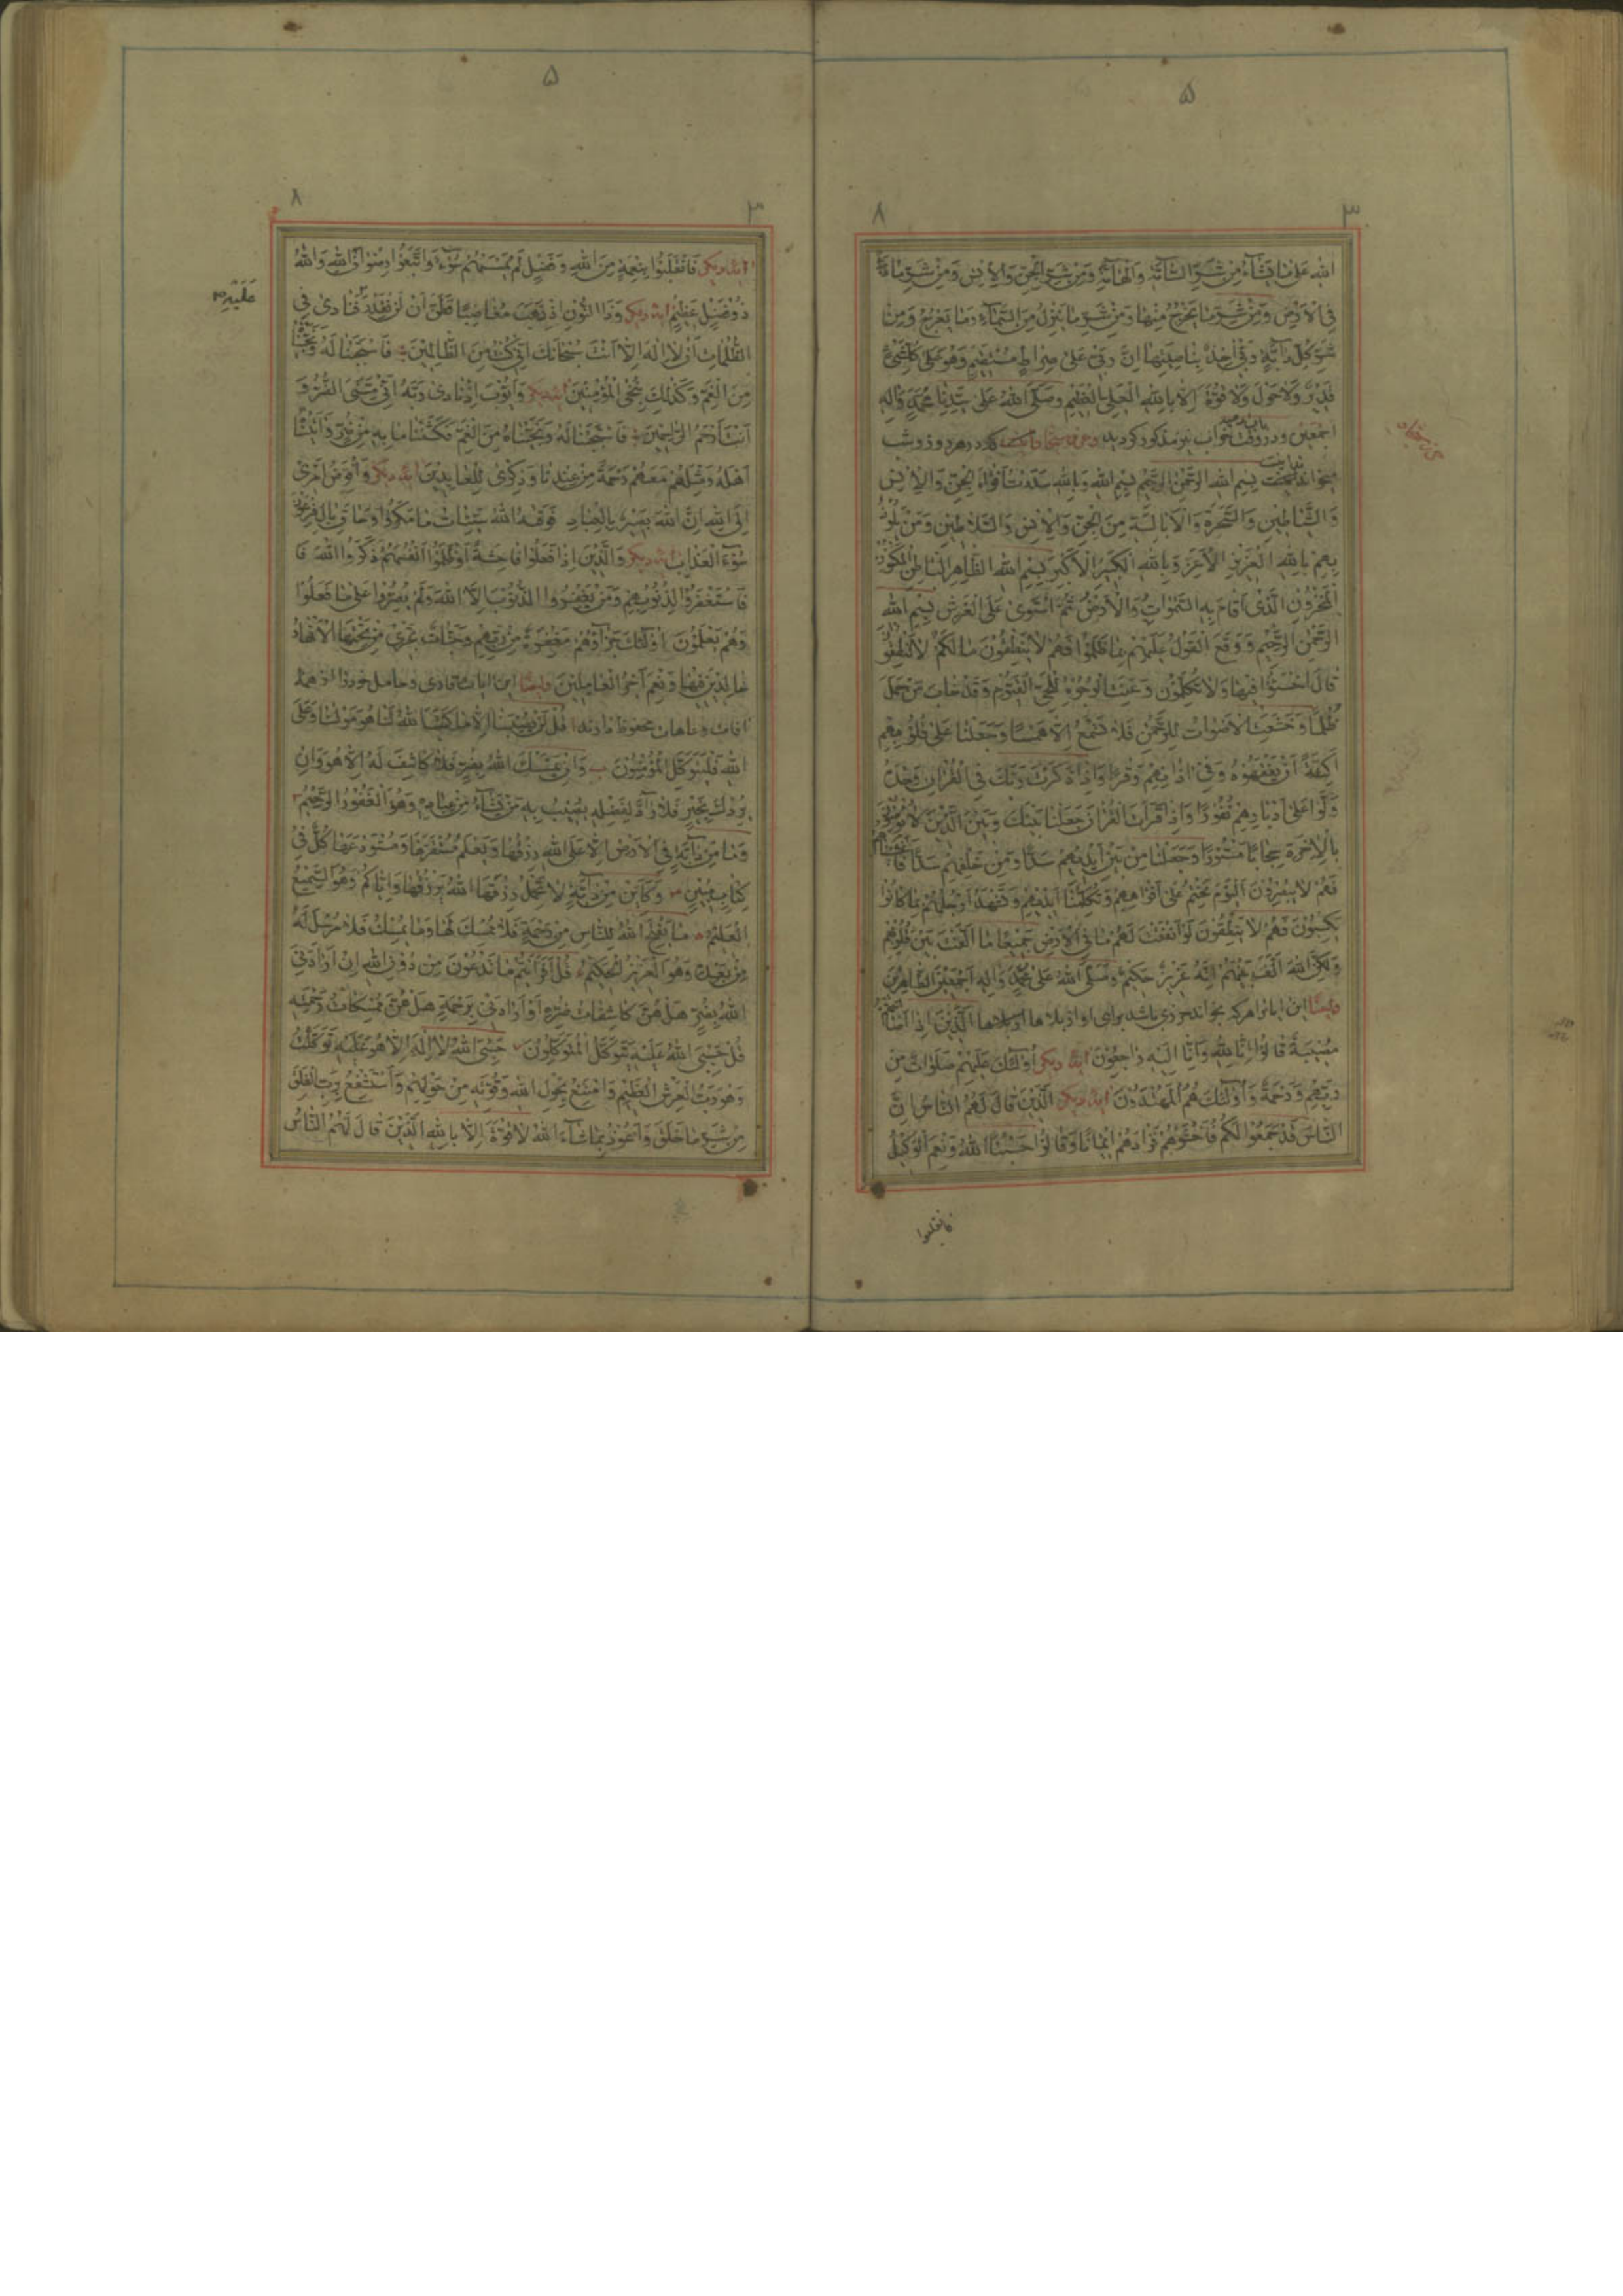 ۵
۳
۸
الله عَلىٰ مٰا يَشٰآءُ مِنْ شَرِّ السّٰآمَّةِ وَالْهٰآمَّةِ وَمِنْ شَرِّ الْجِنِّ وَالْاِنْسِ وَمِنْ شَرِّ مٰا
فِى الْاَرْضِ وَمِنْ شَرِّ مٰا يَخْرُجُ مِنْهٰا وَمِنْ شَرِّ مٰا يَنْزِلُ مِنَ السَّمٰآءِ وَمٰا يَعْرُجُ وَمِنْ
شَرِّ كُلِّ دٰآبَّةٍ رَبّى اٰخِذٌ بِنٰاصِيَتِهٰا اِنَّ رَبّى عَلىٰ صِرٰاطٍ مُسْتَقيمٍ وَهُوَ عَلىٰ كُلِّ شَىْءٍ
قَديرٌ وَلٰا حَوْلَ وَلٰا قُوَّةَ اِلّٰا بِاللهِ الْعَلِىِّ الْعَظيمِ وَصَلَّى اللهُ عَلىٰ سَيِّدِنٰا مُحَمَّدٍ وَاٰلِهِ
اَجْمَعينَ ودر وقت خواب نيز مذكور كرديد كه در هر روز وشب
بخواند بِسْمِ اللهِ الرَّحْمٰنِ الرَّحيمِ بِسْمِ اللهِ وَبِاللهِ سَدَدْتُ اَفْوٰاهَ الْجِنِّ وَالْاِنْسِ
وَالشَّيٰاطينِ وَالسَّحَرَةِ وَالْاَبٰالِسَةِ مِنَ الْجِنِّ وَالْاِنْسِ وَالسَّلٰاطينِ وَمَنْ يَلُوذُ
بِهِمْ بِاللهِ الْعَزيزِ الْاَعَزِّ وَبِاللهِ الْكَبيرِ الْاَكْبَرِ بِسْمِ اللهِ الظّٰاهِرِ الْبٰاطِنِ الْمَكْنُونِ
الْمَخْزُونِ الَّذى اَقٰامَ بِهِ السَّمٰوٰاتِ وَالْاَرْضَ ثُمَّ اسْتَوىٰ عَلَى الْعَرْشِ بِسْمِ اللهِ
الرَّحْمٰنِ الرَّحيمِ وَوَقَعَ الْقَوْلُ عَلَيْهِمْ بِمٰا ظَلَمُوا فَهُمْ لٰا يَنْطِقُونَ مٰا لَكُمْ لٰا تَنْطِقُونَ
قٰالَ اخْسَؤُا فيهٰا وَلٰا تُكَلِّمُونِ وَعَنَتِ الْوُجُوهُ لِلْحَىِّ الْقَيُّومِ وَقَدْ خٰابَ مَنْ حَمَلَ
ظُلْمًا وَخَشَعَتِ الْاَصْوٰاتُ لِلرَّحْمٰنِ فَلٰا تَسْمَعُ اِلّٰا هَمْسًا وَجَعَلْنٰا عَلىٰ قُلُوبِهِمْ
اَكِنَّةً اَنْ يَفْقَهُوهُ وَفى اٰذٰانِهِمْ وَقْرًا وَاِذٰا ذَكَرْتَ رَبَّكَ فِى الْقُرْاٰنِ وَحْدَهُ
وَلَّوْا عَلىٰ اَدْبٰارِهِمْ نُفُورًا وَاِذٰا قَرَاْتَ الْقُرْاٰنَ جَعَلْنٰا بَيْنَكَ وَبَيْنَ الَّذينَ لٰا يُؤْمِنُونَ
بِالْاٰخِرَةِ حِجٰابًا مَسْتُورًا وَجَعَلْنٰا مِنْ بَيْنِ اَيْديهِمْ سَدًّا وَمِنْ خَلْفِهِمْ سَدًّا فَاَغْشَيْنٰاهُمْ
فَهُمْ لٰا يُبْصِرُونَ اَلْيَوْمَ نَخْتِمُ عَلىٰ اَفْوٰاهِهِمْ وَتُكَلِّمُنٰا اَيْديهِمْ وَتَشْهَدُ اَرْجُلُهُمْ بِمٰا كٰانُوا
يَكْسِبُونَ فَهُمْ لٰا يَنْطِقُونَ لَوْ اَنْفَقْتَ مٰا فِى الْاَرْضِ جَميعًا مٰا اَلَّفْتَ بَيْنَ قُلُوبِهِمْ
وَلٰكِنَّ اللهَ اَلَّفَ بَيْنَهُمْ اِنَّهُ عَزيزٌ حَكيمٌ وَصَلَّى اللهُ عَلىٰ مُحَمَّدٍ وَاٰلِهِ اَجْمَعينَ الطّٰاهِرينَ
وايضًا اين اياترا هركه بخواند حرزى باشد براى او از بلاها اَلَّذينَ اِذٰا اَصٰابَتْهُمْ
مُصيبَةٌ قٰالُوا اِنّٰا لِلّٰهِ وَاِنّٰا اِلَيْهِ رٰاجِعُونَ ايهٔ ديكر اُولٰئِكَ عَلَيْهِمْ صَلَوٰاتٌ مِنْ
رَبِّهِمْ وَرَحْمَةٌ وَاُولٰئِكَ هُمُ الْمُهْتَدُونَ ايهٔ ديكر اَلَّذينَ قٰالَ لَهُمُ النّٰاسُ اِنَّ
النّٰاسَ قَدْ جَمَعُوا لَكُمْ فَاخْشَوْهُمْ فَزٰادَهُمْ ايمٰانًا وَقٰالُوا حَسْبُنَا اللهُ وَنِعْمَ الْوَكيلُ
فانقلبوا
۵
۳
۸
ايهٔ ديكر فَانْقَلَبُوا بِنِعْمَةٍ مِنَ اللهِ وَفَضْلٍ لَمْ يَمْسَسْهُمْ سُوْءٌ وَاتَّبَعُوا رِضْوٰانَ اللهِ وَاللهُ
ذُو فَضْلٍ عَظيمٍ ايهٔ ديكر وَذَا النُّونِ اِذْ ذَهَبَ مُغٰاضِبًا فَظَنَّ اَنْ لَنْ نَقْدِرَ فَنٰادىٰ فِى
عَلَيْهِ
الظُّلُمٰاتِ اَنْ لٰا اِلٰهَ اِلّٰا اَنْتَ سُبْحٰانَكَ اِنّى كُنْتُ مِنَ الظّٰالِمينَ فَاسْتَجَبْنٰا لَهُ وَنَجَّيْنٰاهُ
مِنَ الْغَمِّ وَكَذٰلِكَ نُنْجِى الْمُؤْمِنينَ ايهٔ ديكر وَاَيُّوبَ اِذْ نٰادىٰ رَبَّهُ اَنّى مَسَّنِىَ الضُّرُّ وَ
اَنْتَ اَرْحَمُ الرّٰاحِمينَ فَاسْتَجَبْنٰا لَهُ وَنَجَّيْنٰاهُ مِنَ الْغَمِّ فَكَشَفْنٰا مٰا بِهِ مِنْ ضُرٍّ وَاٰتَيْنٰاهُ
اَهْلَهُ وَمِثْلَهُمْ مَعَهُمْ رَحْمَةً مِنْ عِنْدِنٰا وَذِكْرىٰ لِلْعٰابِدينَ ايهٔ ديكر وَاُفَوِّضُ اَمْرى
اِلَى اللهِ اِنَّ اللهَ بَصيرٌ بِالْعِبٰادِ فَوَقٰيهُ اللهُ سَيِّئٰاتِ مٰا مَكَرُوا وَحٰاقَ بِاٰلِ فِرْعَوْنَ
سُوْءُ الْعَذٰابِ ايهٔ ديكر وَالَّذينَ اِذٰا فَعَلُوا فٰاحِشَةً اَوْ ظَلَمُوا اَنْفُسَهُمْ ذَكَرُوا اللهَ فَا
فَاسْتَغْفَرُوا لِذُنُوبِهِمْ وَمَنْ يَغْفِرُ الذُّنُوبَ اِلَّا اللهُ وَلَمْ يُصِرُّوا عَلىٰ مٰا فَعَلُوا
وَهُمْ يَعْلَمُونَ اُولٰئِكَ جَزٰآؤُهُمْ مَغْفِرَةٌ مِنْ رَبِّهِمْ وَجَنّٰاتٌ تَجْرى مِنْ تَحْتِهَا الْاَنْهٰارُ
خٰالِدينَ فيهٰا وَنِعْمَ اَجْرُ الْعٰامِلينَ وايضًا اين ايات قارى وحامل خودرا از همهٔ
افات وعاهات محفوظ دارند قُلْ لَنْ يُصيبَنٰا اِلّٰا مٰا كَتَبَ اللهُ لَنٰا هُوَ مَوْلٰينٰا وَعَلَى
اللهِ فَلْيَتَوَكَّلِ الْمُؤْمِنُونَ وَاِنْ يَمْسَسْكَ اللهُ بِضُرٍّ فَلٰا كٰاشِفَ لَهُ اِلّٰا هُوَ وَاِنْ
يُرِدْكَ بِخَيْرٍ فَلٰا رٰآدَّ لِفَضْلِهِ يُصيبُ بِهِ مَنْ يَشٰآءُ مِنْ عِبٰادِهِ وَهُوَ الْغَفُورُ الرَّحيمُ
وَمٰا مِنْ دٰآبَّةٍ فِى الْاَرْضِ اِلّٰا عَلَى اللهِ رِزْقُهٰا وَيَعْلَمُ مُسْتَقَرَّهٰا وَمُسْتَوْدَعَهٰا كُلٌّ فى
كِتٰابٍ مُبينٍ وَكَاَيِّنْ مِنْ دٰآبَّةٍ لٰا تَحْمِلُ رِزْقَهَا اللهُ يَرْزُقُهٰا وَاِيّٰاكُمْ وَهُوَ السَّميعُ
الْعَليمُ مٰا يَفْتَحِ اللهُ لِلنّٰاسِ مِنْ رَحْمَةٍ فَلٰا مُمْسِكَ لَهٰا وَمٰا يُمْسِكْ فَلٰا مُرْسِلَ لَهُ
مِنْ بَعْدِهِ وَهُوَ الْعَزيزُ الْحَكيمُ قُلْ اَفَرَاَيْتُمْ مٰا تَدْعُونَ مِنْ دُونِ اللهِ اِنْ اَرٰادَنِىَ
اللهُ بِضُرٍّ هَلْ هُنَّ كٰاشِفٰاتُ ضُرِّهِ اَوْ اَرٰادَنى بِرَحْمَةٍ هَلْ هُنَّ مُمْسِكٰاتُ رَحْمَتِهِ
قُلْ حَسْبِىَ اللهُ عَلَيْهِ يَتَوَكَّلُ الْمُتَوَكِّلُونَ حَسْبِىَ اللهُ لٰا اِلٰهَ اِلّٰا هُوَ عَلَيْهِ تَوَكَّلْتُ
وَهُوَ رَبُّ الْعَرْشِ الْعَظيمِ وَاَمْتَنِعُ بِحَوْلِ اللهِ وَقُوَّتِهِ مِنْ حَوْلِهِمْ وَاَسْتَشْفِعُ بِرَبِّ الْفَلَقِ
مِنْ شَرِّ مٰا خَلَقَ وَاَعُوذُ بِمٰا شٰآءَ اللهُ لٰا قُوَّةَ اِلّٰا بِاللهِ الَّذينَ قٰالَ لَهُمُ النّٰاسُ